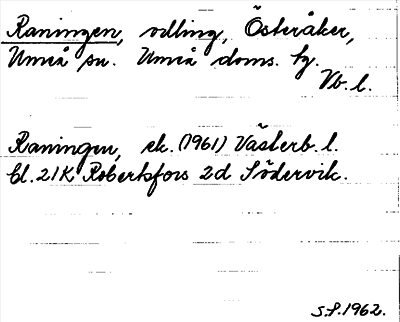 Raningen, odling, Österåker,
Umeå sn. Umeå doms. tg.
Vb. l.
Raningen, ek. (1961) Västerb. l.
bl. 21K Robertsfors 2d Södervik.
S.P. 1962.